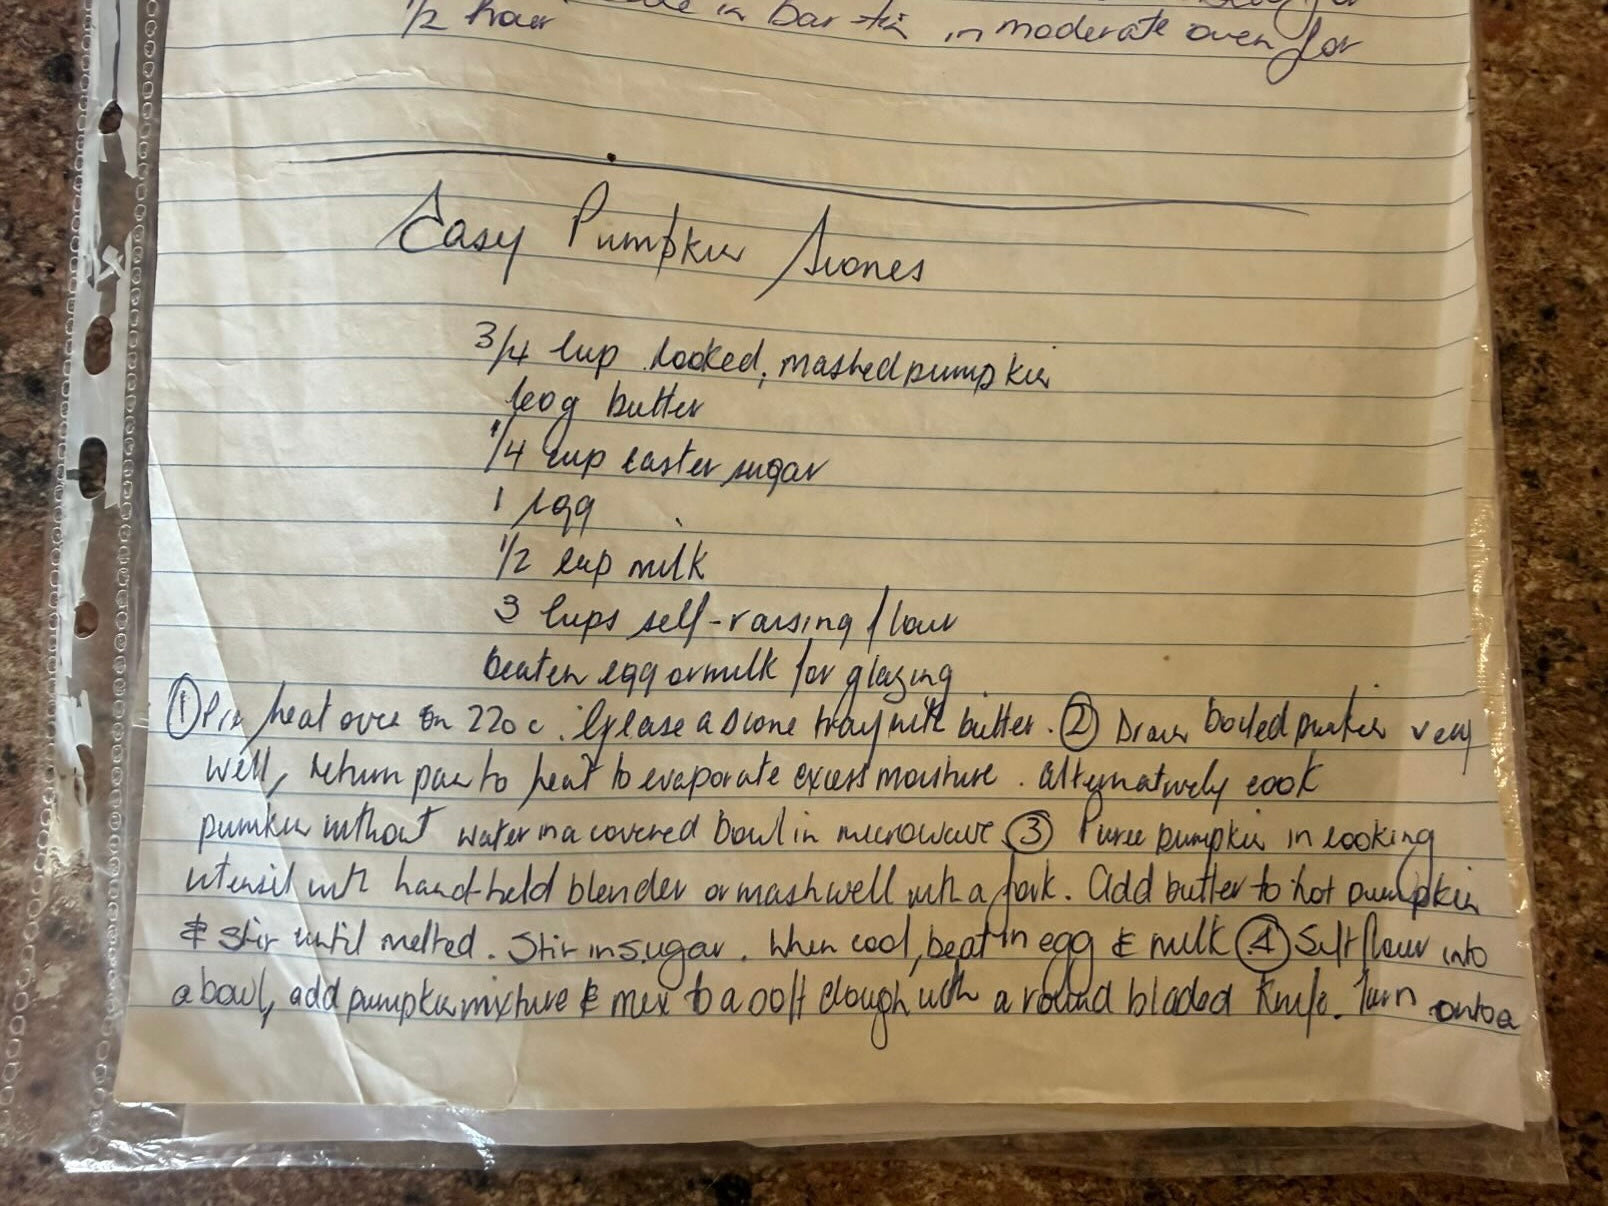 in bar tin in moderate oven for
1/2 hour
Easy Pumpkin Scones
3/4 cup cooked, mashed pumpkin
60g butter
1/4 cup caster sugar
1 egg
1/2 cup milk
3 cups self-raising flour
beaten egg or milk for glazing
① Pre heat oven on 220c. Grease a scone tray with butter. ② Drain boiled pumkin very
well, return pan to heat to evaporate excess moisture. Alternatively cook
pumkin without water in a covered bowl in microwave ③ Puree pumpkin in cooking
utensil with hand-held blender or mash well with a fork. Add butter to hot pumpkin
& stir until melted. Stir in sugar. When cool, beat in egg & milk ④ Sift flour into
a bowl, add pumpkin mixture & mix to a soft dough with a round bladed knife. Turn onto a